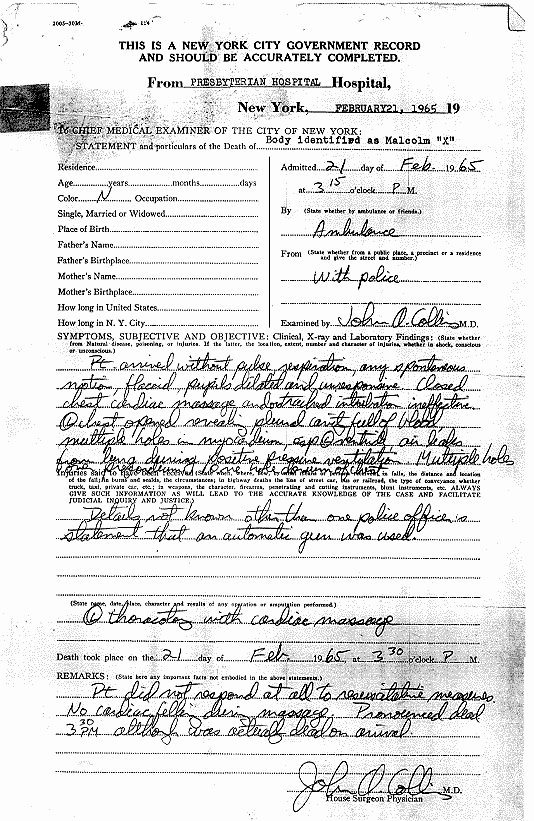 2005-30M-
THIS IS A NEW YORK CITY GOVERNMENT RECORD
AND SHOULD BE ACCURATELY COMPLETED.
From PRESBYTERIAN HOSPITAL Hospital,
New York, FEBRUARY21, 1965 19
To CHIEF MEDICAL EXAMINER OF THE CITY OF NEW YORK:
STATEMENT and particulars of the Death of Body identified as Malcolm "X"
Residence
Age years months days
Color N Occupation
Single, Married or Widowed
Place of Birth
Father's Name
Father's Birthplace
Mother's Name
Mother's Birthplace
How long in United States
How long in N. Y. City
Admitted 21 day of Feb. 1965
at 3 15 o'clock P M.
By (State whether by ambulance or friends.)
Ambulance
From (State whether from a public place, a precinct or a residence
and give the street and number.)
With police
Examined by John A. Collins M.D.
SYMPTOMS, SUBJECTIVE AND OBJECTIVE: Clinical, X-ray and Laboratory Findings: (State whether
from Natural disease, poisoning, or injuries. If the latter, the location, extent, number and character of injuries, whether in shock, conscious
or unconscious.)
Pt arrived without pulse respiration any spontaneous
motion flaccid, pupils dilated and unresponsive Closed
chest cardiac massage and intubation ineffective
L chest opened reveals pleural cavity full of blood
multiple holes in myocardium esp L ventricle air leaks
from lung during positive pressure ventilation Multiple holes
of the fall; in burns and scalds, the circumstances; in highway deaths the lines of street car, bus or railroad, the type of conveyance whether
truck, taxi, private car, etc.; in weapons, the character, firearms, penetrating and cutting instruments, blunt instruments, etc. ALWAYS
GIVE SUCH INFORMATION AS WILL LEAD TO THE ACCURATE KNOWLEDGE OF THE CASE AND FACILITATE
JUDICIAL INQUIRY AND JUSTICE.)
Details not known other than one police officer's
statement that an automatic gun was used.
(State name, date, place, character and results of any operation or amputation performed.)
L thoracotomy with cardiac massage
Death took place on the 21 day of Feb. 1965, at 3 30 o'clock P M.
REMARKS: (State here any important facts not embodied in the above statements.)
Pt. did not respond at all to resuscitative measures.
No cardiac during massage. Pronounced dead
3 30 PM although was actually dead on arrival.
John A. Collins M.D.
House Surgeon Physician